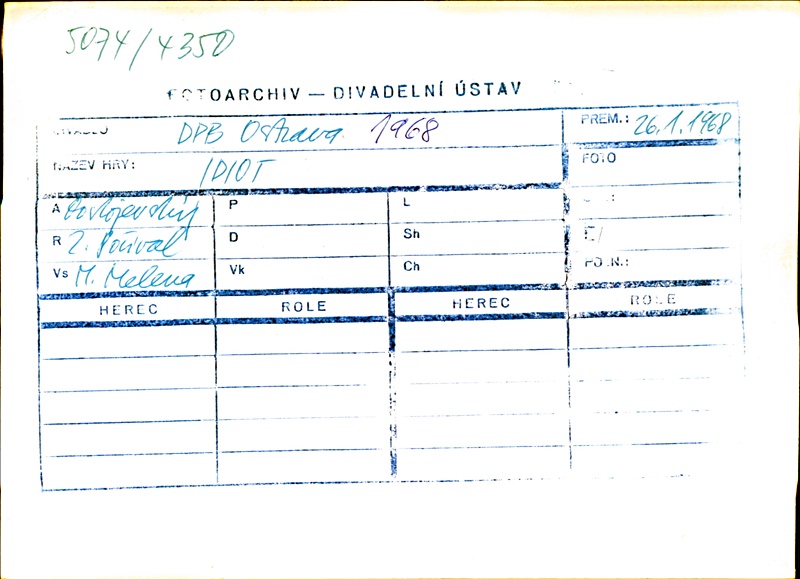 5074/4350
FOTOARCHIV — DIVADELNÍ ÚSTAV
DIVADLO DPB Ostrava 1968 PREM.: 26.1.1968
NÁZEV HRY: IDIOT FOTO
A Dostojevskij P L
R Z. Pošíval D Sh
Vs M. Melena Vk Ch POZN.:
HEREC ROLE HEREC ROLE